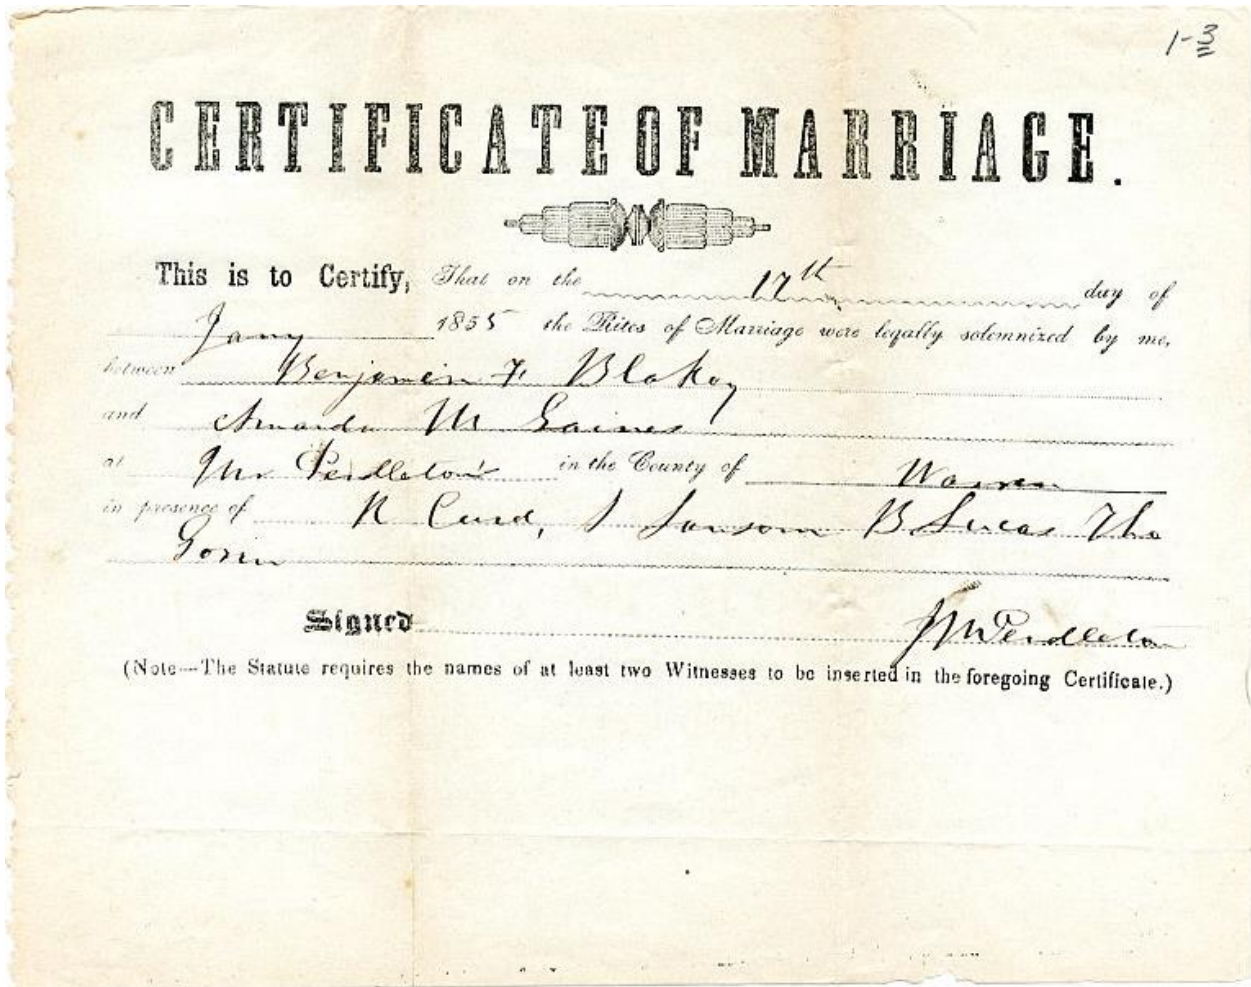 1-3
CERTIFICATE OF MARRIAGE.
This is to Certify, That on the 17th day of
Jany 1855 the Rites of Marriage were legally solemnized by me,
between Benjamin F Blakey
and Amanda M Gaines
at Mr Pendleton's in the County of Warren
in presence of R Curd, J Sansom B Lucas Tho
Gorin
Signed J M Pendleton
(Note—The Statute requires the names of at least two Witnesses to be inserted in the foregoing Certificate.)